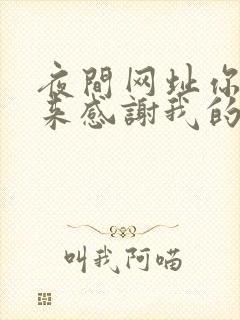 夜間网址你
来感謝我的
叫我阿喵